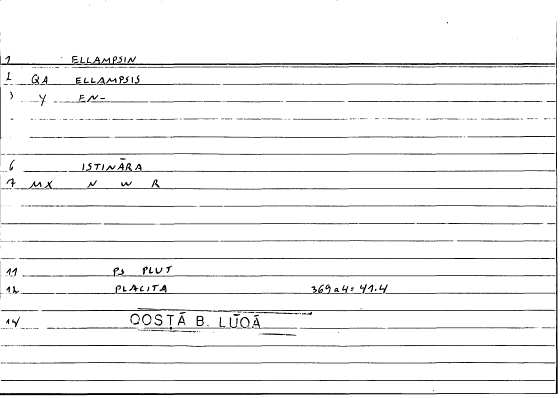 1 ELLAMPSIN
2 QA ELLAMPSIS
3 Y EN-
6 ISTINĀRA
7 MX N W R
11 PS PLUT
12 PLACITA 369a4=41.4
14 QOSṬĀ B. LŪQĀ